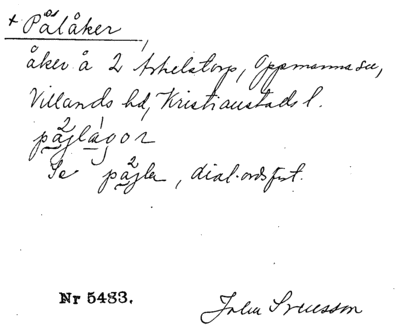 + Pålåker,
åker å 2 Arkelstorp, Oppmanna sn,
Villands hd, Kristianstads l.
påjlågor
Se påjla, dial.ordsfört.
Nr 5483.
John Svensson